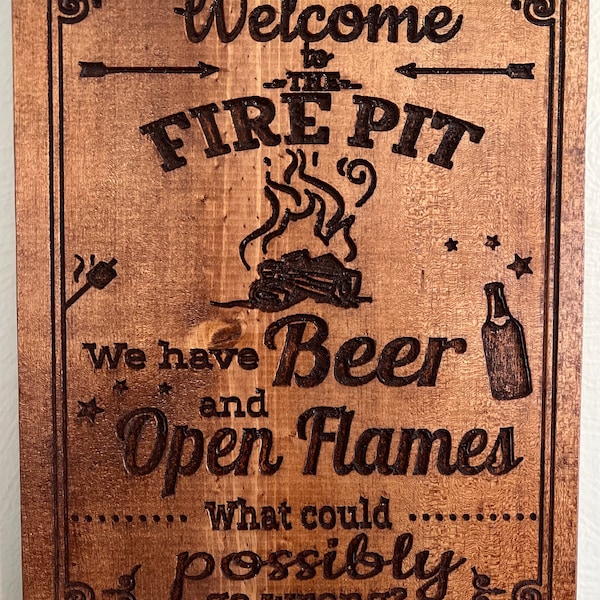 Welcome
to
THE
FIRE PIT
We have Beer
and
Open Flames
What could
possibly
go wrong?